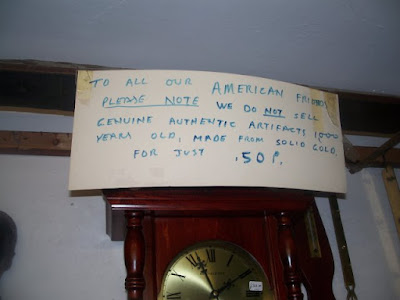 TO ALL OUR AMERICAN FRIENDS
PLEASE NOTE WE DO NOT SELL
GENUINE AUTHENTIC ARTIFACTS 1000
YEARS OLD, MADE FROM SOLID GOLD.
FOR JUST .50P.